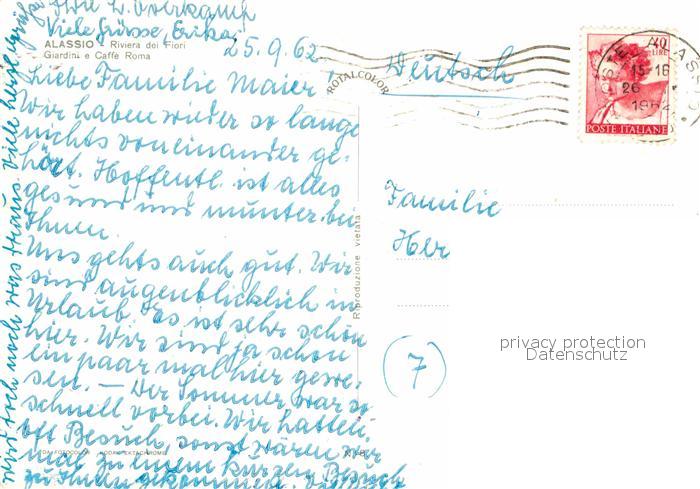 Ihre L. Overkamp
Viele Grüsse, Erika!
ALASSIO - Riviera dei Fiori
Giardini e Caffè Roma
25.9.62
Liebe Familie Maier!
Wir haben wieder so lange
nichts voneinander ge-
hört. Hoffentl. ist alles
gesund und munter bei
Ihnen.
Uns gehts auch gut. Wir
sind augenblicklich in
Urlaub. Es ist sehr schön
hier. Wir sind ja schon
ein paar mal hier gewe-
sen. — Der Sommer war so
schnell vorbei. Wir hatten
oft Besuch, sonst wären wir
mal zu einem kurzen Besuch
zu Ihnen gekommen. Vielleicht
wird doch noch was draus. Viele liebe Grüße
ROTALCOLOR
Riproduzione vietata
Deutsch
40
LIRE
POSTE ITALIANE
15-16
26
1962
Familie
Her
7
privacy protection
Datenschutz